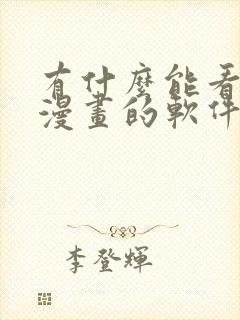 有什麼能看
漫畫的軟件
李登輝